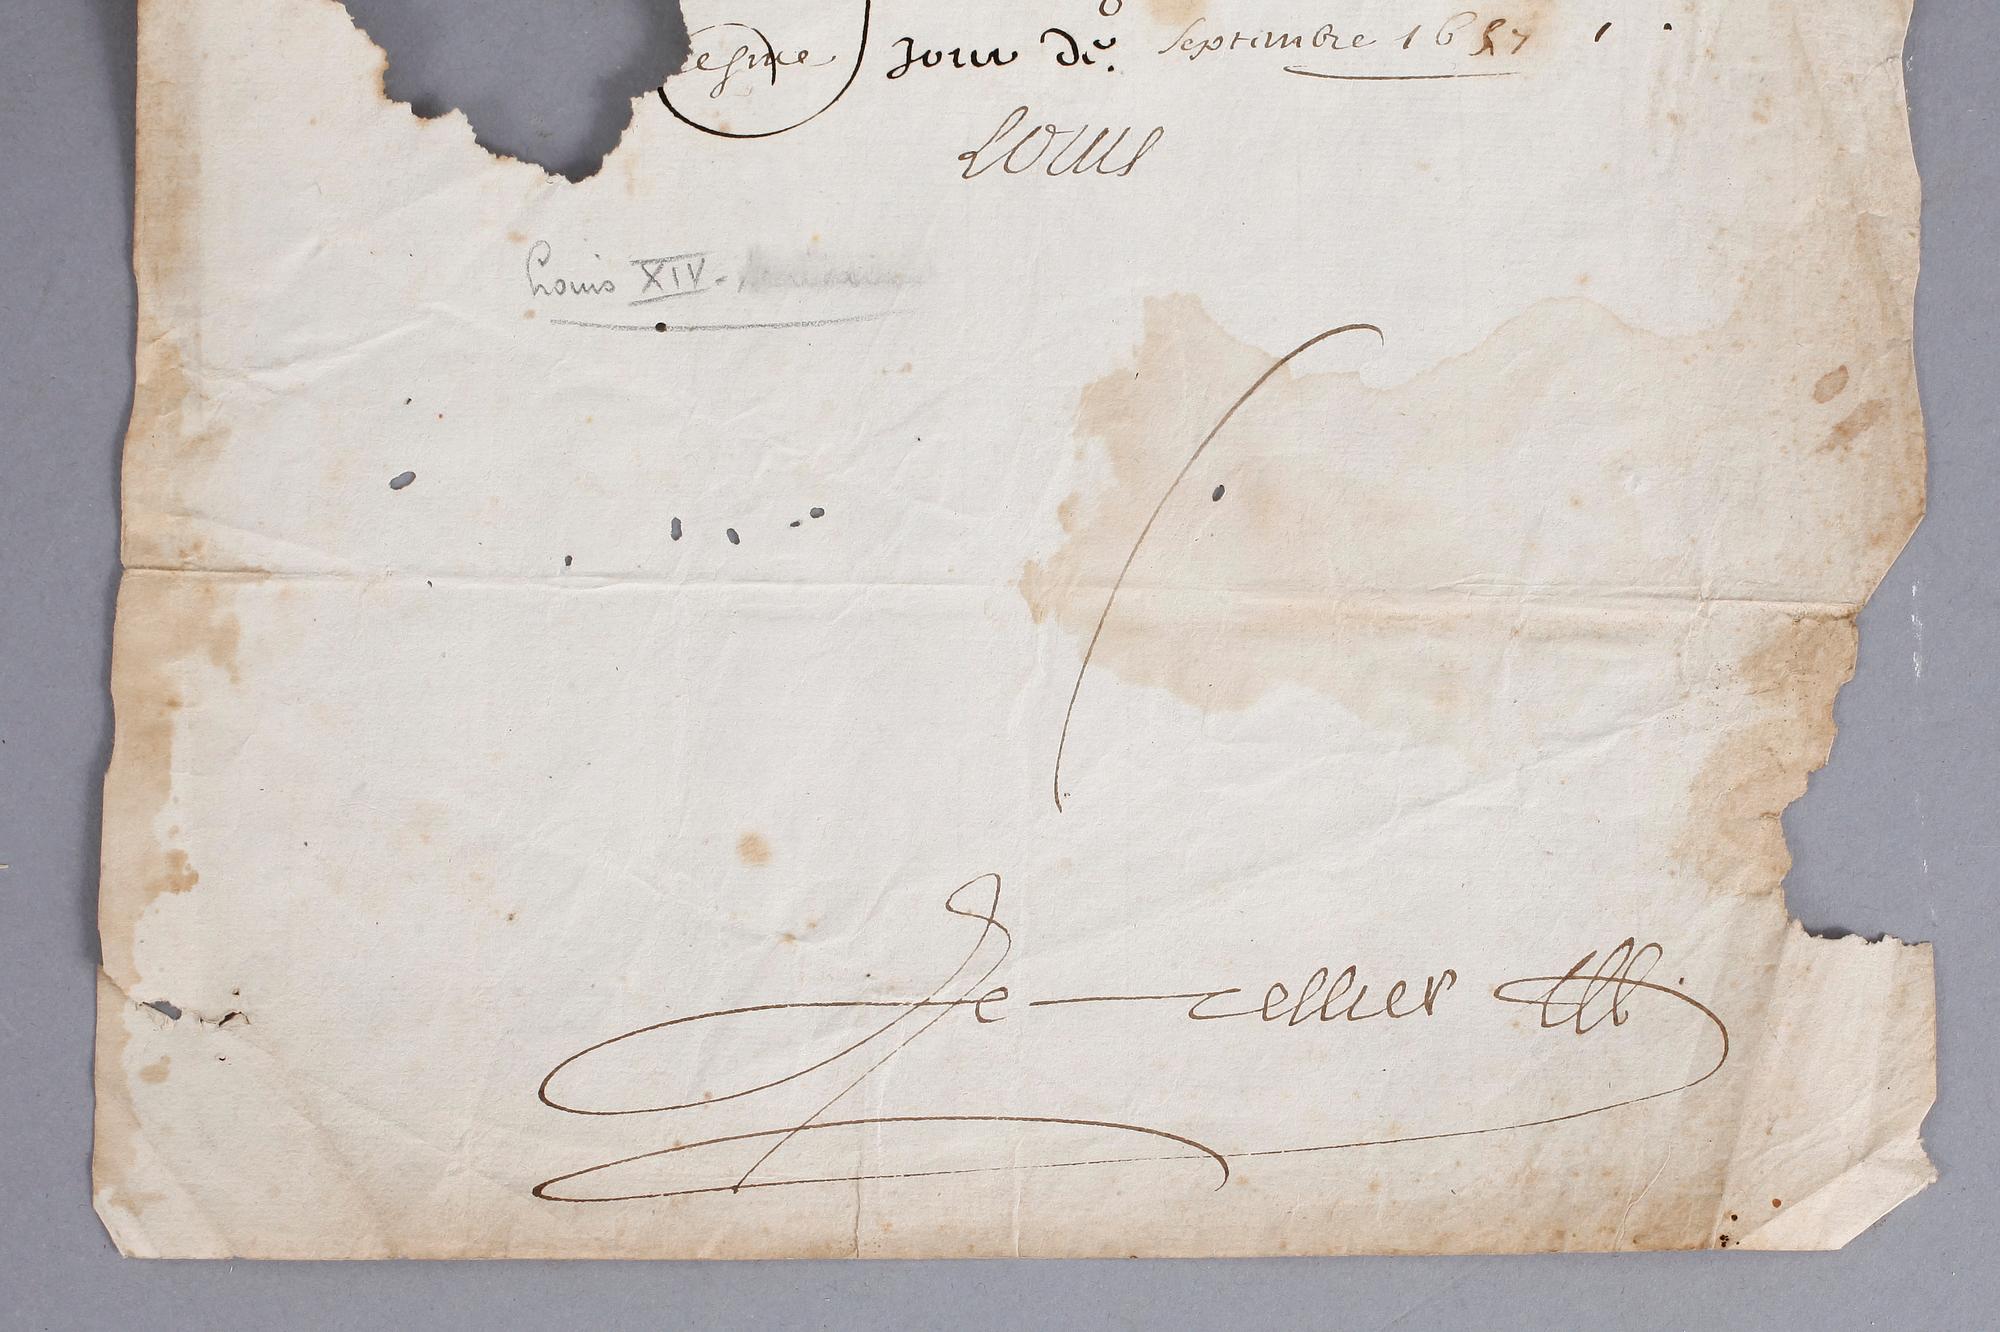 esme Jour de Septembre 1657
Louis
Louis XIV -
Le Tellier